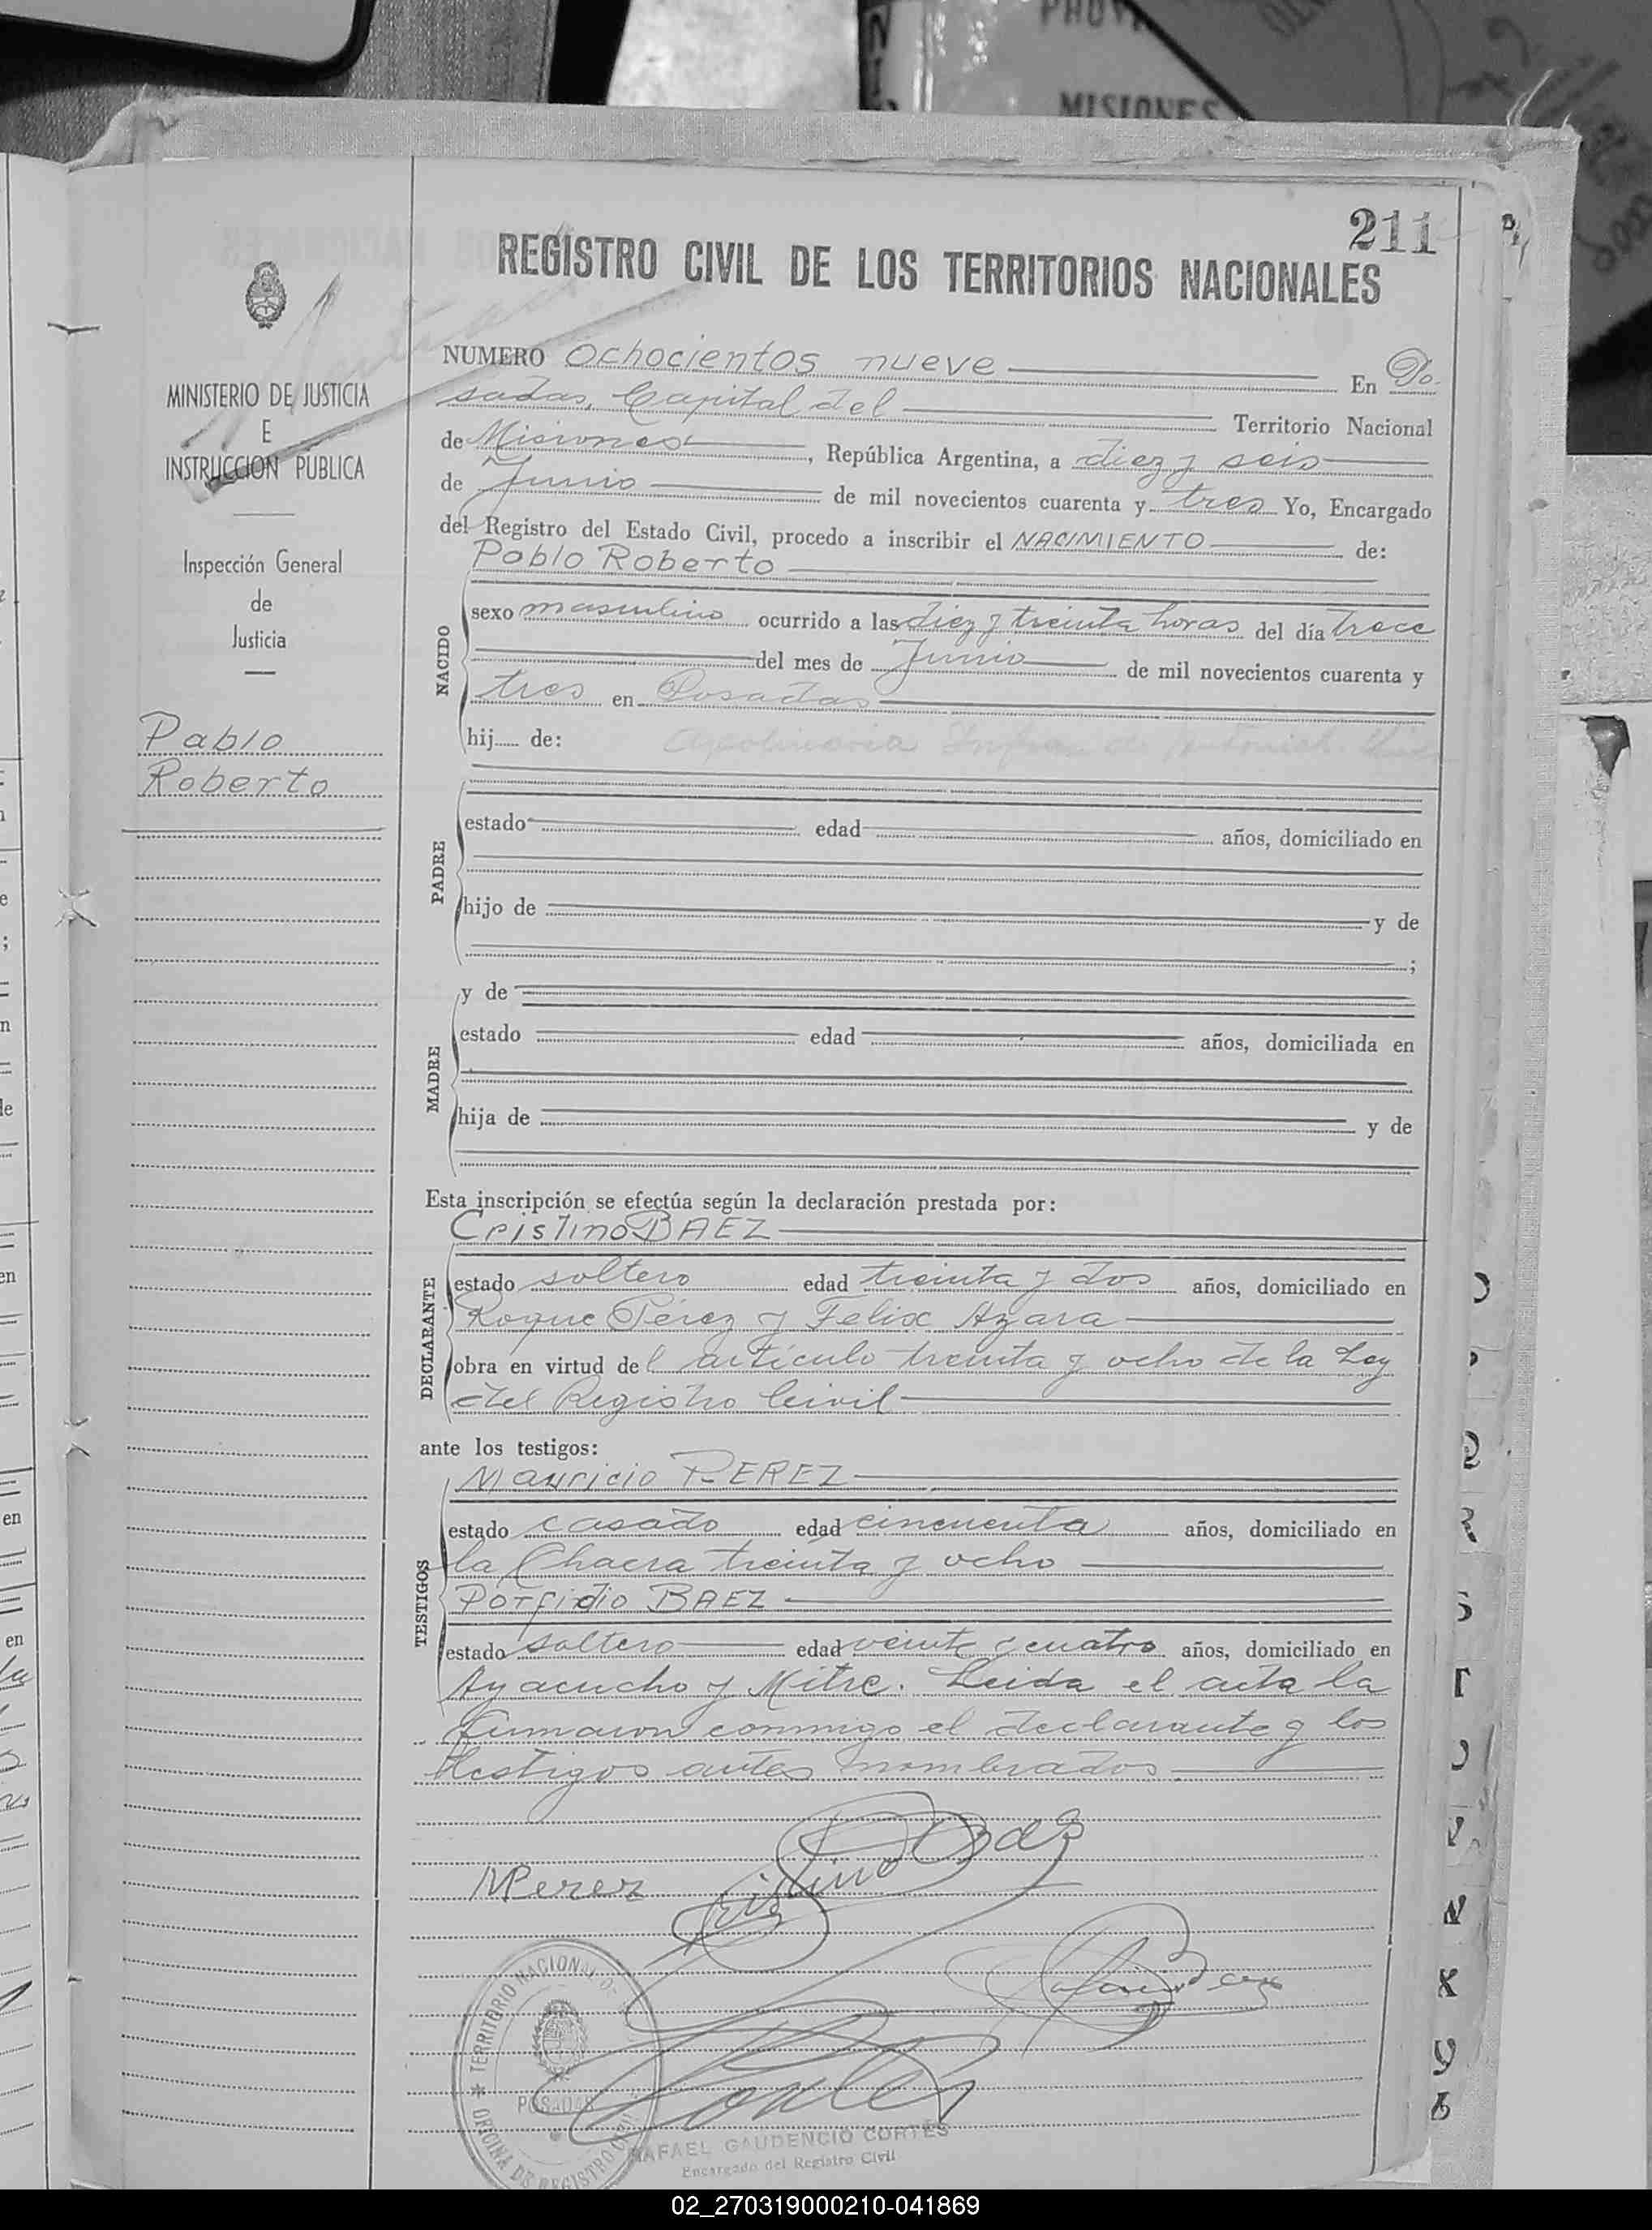 MISIONES
211
REGISTRO CIVIL DE LOS TERRITORIOS NACIONALES
MINISTERIO DE JUSTICIA
E
INSTRUCCION PÚBLICA
Inspección General
de
Justicia
Pablo
Roberto
NUMERO Ochocientos nueve En Po-
sadas, Capital del Territorio Nacional
de Misiones, República Argentina, a diez y seis
de Junio de mil novecientos cuarenta y tres Yo, Encargado
del Registro del Estado Civil, procedo a inscribir el NACIMIENTO de:
Pablo Roberto
NACIDO
sexo masculino ocurrido a las diez y treinta horas del día trece
del mes de Junio de mil novecientos cuarenta y
tres en Posadas
hij de:
PADRE
estado edad años, domiciliado en
hijo de y de
;
MADRE
y de
estado edad años, domiciliada en
hija de y de
Esta inscripción se efectúa según la declaración prestada por:
Cristino BAEZ
DECLARANTE
estado soltero edad treinta y dos años, domiciliado en
Roque Pérez y Felix Azara
obra en virtud del artículo treinta y ocho de la Ley
del Registro Civil
ante los testigos:
Mauricio PEREZ
TESTIGOS
estado casado edad cincuenta años, domiciliado en
la Chacra treinta y ocho
Porfidio BAEZ
estado soltero edad veinte y cuatro años, domiciliado en
Ayacucho y Mitre. Leida el acta la
firmaron conmigo el declarante y los
testigos antes nombrados.
Cristino Baez
MPerez
TERRITORIO NACIONAL DE
POSADAS
OFICINA DE REGISTRO CIVIL
Cortes
RAFAEL GAUDENCIO CORTÉS
Encargado del Registro Civil
02_270319000210-041869